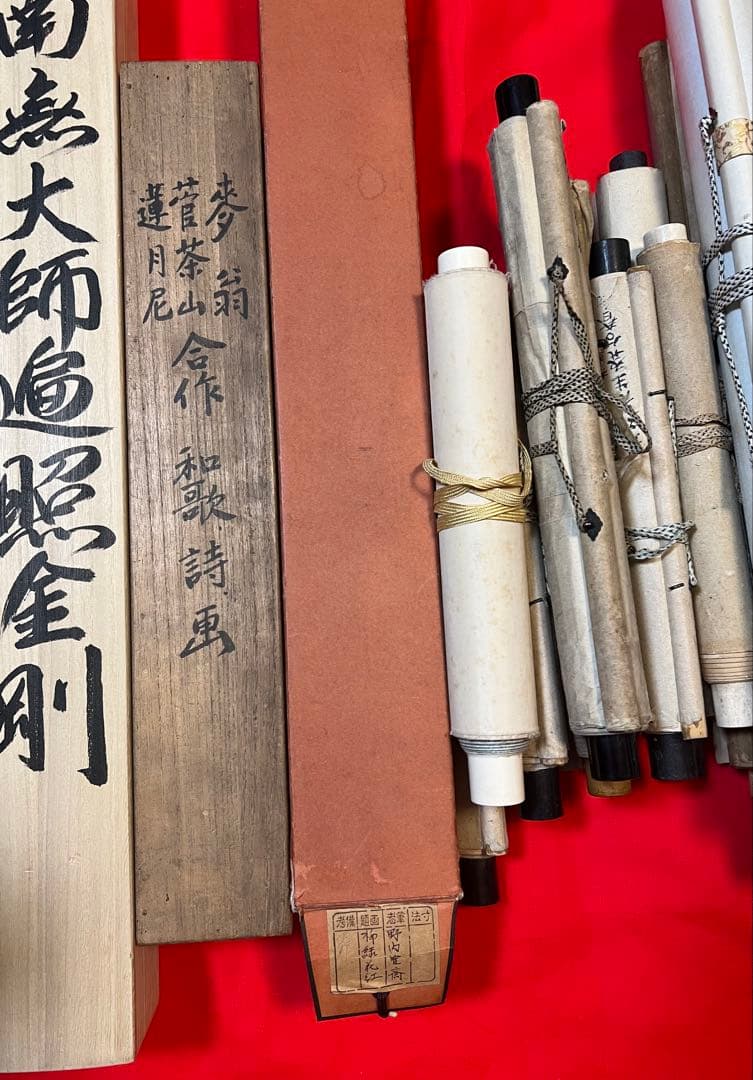 南無大師遍照金剛
麥翁
菅茶山
蓮月尼
合作 和歌 詩 画
寸法
筆者
画題
備考
柳緑花紅